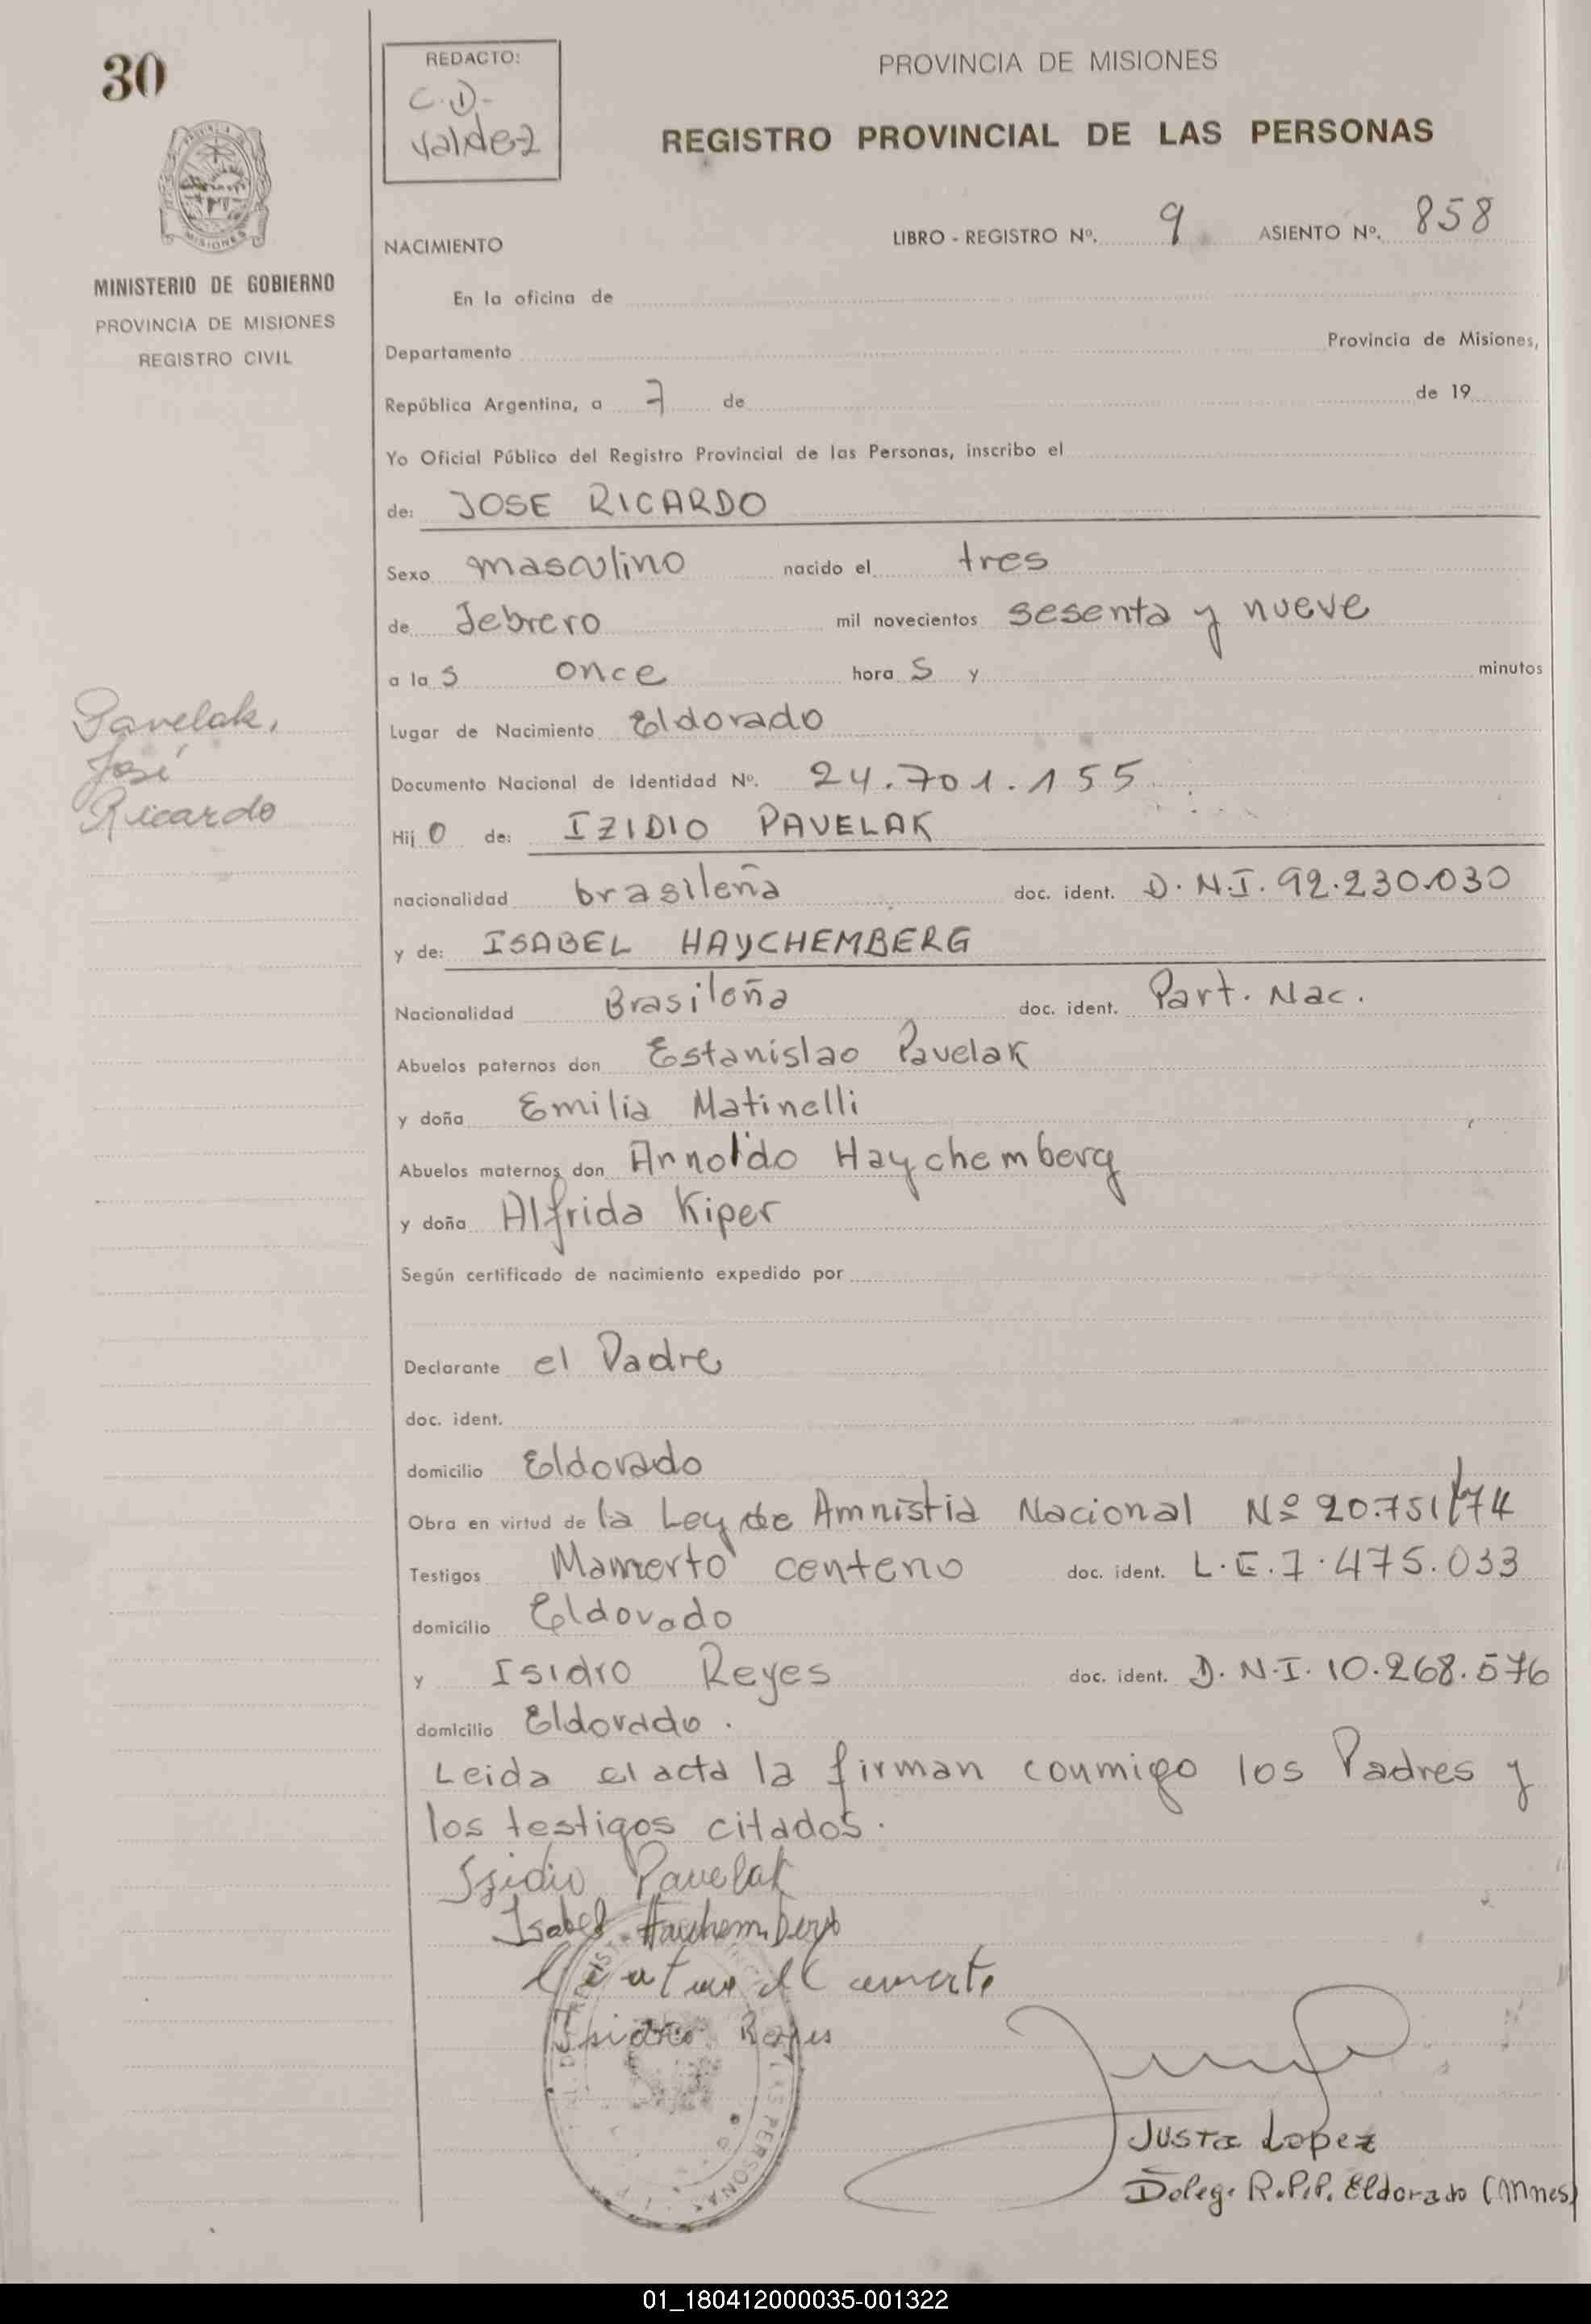 30
REDACTO:
C.D.
Valdez
PROVINCIA DE MISIONES
REGISTRO PROVINCIAL DE LAS PERSONAS
MISIONES
MINISTERIO DE GOBIERNO
PROVINCIA DE MISIONES
REGISTRO CIVIL
NACIMIENTO
LIBRO - REGISTRO Nº. 9 ASIENTO Nº. 858
En la oficina de
Departamento Provincia de Misiones,
República Argentina, a 7 de de 19
Yo Oficial Público del Registro Provincial de las Personas, inscribo el
de: JOSE RICARDO
Sexo masculino nacido el tres
de Febrero mil novecientos sesenta y nueve
a las once horas y minutos
Lugar de Nacimiento Eldorado
Documento Nacional de Identidad Nº. 24.701.155
Pavelak,
José
Ricardo
Hijo de: IZIDIO PAVELAK
nacionalidad brasileña doc. ident. D.N.I. 92.230.030
y de: ISABEL HAYCHEMBERG
Nacionalidad Brasileña doc. ident. Part. Nac.
Abuelos paternos don Estanislao Pavelak
y doña Emilia Matinelli
Abuelos maternos don Arnoldo Haychemberg
y doña Alfrida Kiper
Según certificado de nacimiento expedido por
Declarante el Padre
doc. ident.
domicilio Eldorado
Obra en virtud de la Ley de Amnistia Nacional Nº 20.751/74
Testigos Mamerto centeno doc. ident. L.E.7.475.033
domicilio Eldorado
y Isidro Reyes doc. ident. D.N.I. 10.268.576
domicilio Eldorado.
Leida el acta la firman conmigo los Padres y
los testigos citados.
Izidio Pavelak
Isabel Hauchemberg
Isidro Reyes
Justa Lopez
Deleg. R.P.P. Eldorado (Mnes)
01_180412000035-001322